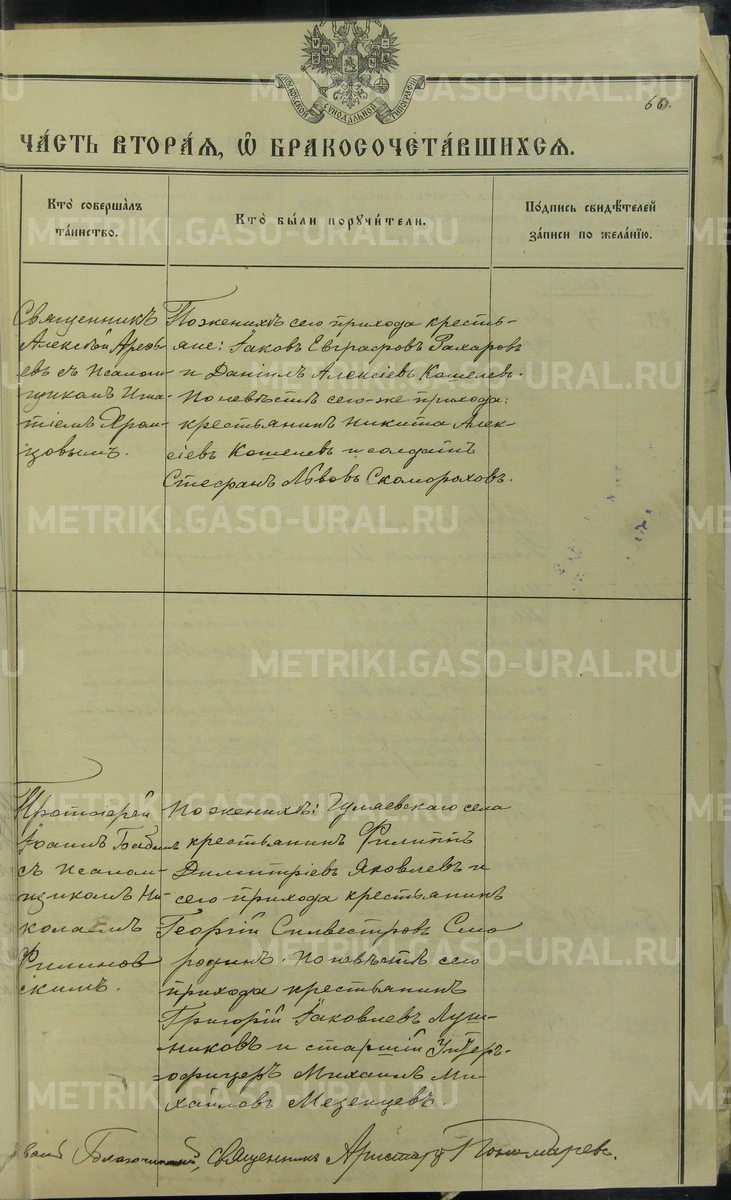 МОСКОВСКОЙ СУНОДАЛЬНОЙ ТИПОГРАФІИ
66.
ЧА́СТЬ ВТОРА́Я, Ѡ БРАКОСОЧЕТА́ВШИХСЯ.
Кто̀ соверша̀лъ
та́инство.
Кто̀ бы́ли порꙋчи́тели.
По́дпись свидѣ́телей
за́писи по жела́нїю.
Священникъ
Алексѣй Арефь-
евъ съ псалом-
щикомъ Игна-
тіемъ Храм-
цовымъ.
По женихѣ сего прихода кресть-
яне: Іаковъ Евграфовъ Захаровъ
и Даніилъ Алексіевъ Кошелевъ.
По невѣстѣ сего-же прихода:
крестьянинъ Никита Алек-
сіевъ Кошелевъ и солдатъ
Стефанъ Львовъ Скомороховъ.
Протоіерей
Іоаннъ
съ псалом-
щикомъ Ни-
колаемъ
Филинов-
скимъ.
По женихѣ: Гуляевскаго села
крестьянинъ Филиппъ
Димитріевъ Яковлевъ и
сего прихода крестьянинъ
Георгій Силвестровъ Смо-
родинъ. По невѣстѣ сего
прихода крестьянинъ
Григорій Іаковлевъ Луш-
никовъ и старшій Унтеръ-
офицеръ Михаилъ Ми-
хайловъ Мезенцевъ.
Благочинный, Священникъ Аристархъ Пономаревъ.
METRIKI.GASO-URAL.RU